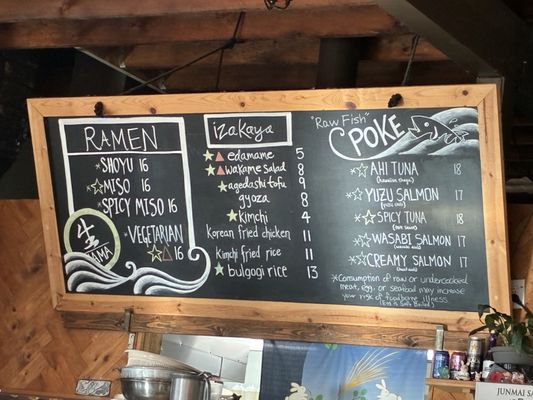 RAMEN
*SHOYU 16
*MISO 16
*SPICY MISO 16
VEGETARIAN
16
izakaya
edamame 5
wakame salad 8
agedashi tofu 9
gyoza 8
kimchi 4
Korean fried chicken 11
Kimchi fried rice 11
bulgogi rice 13
"Raw Fish"
POKE
*AHI TUNA 18
*YUZU SALMON 17
*SPICY TUNA 18
*WASABI SALMON 17
*CREAMY SALMON 17
*Consumption of raw or undercooked
meat, egg, or seafood may increase
your risk of foodborne illness
JUNMAI